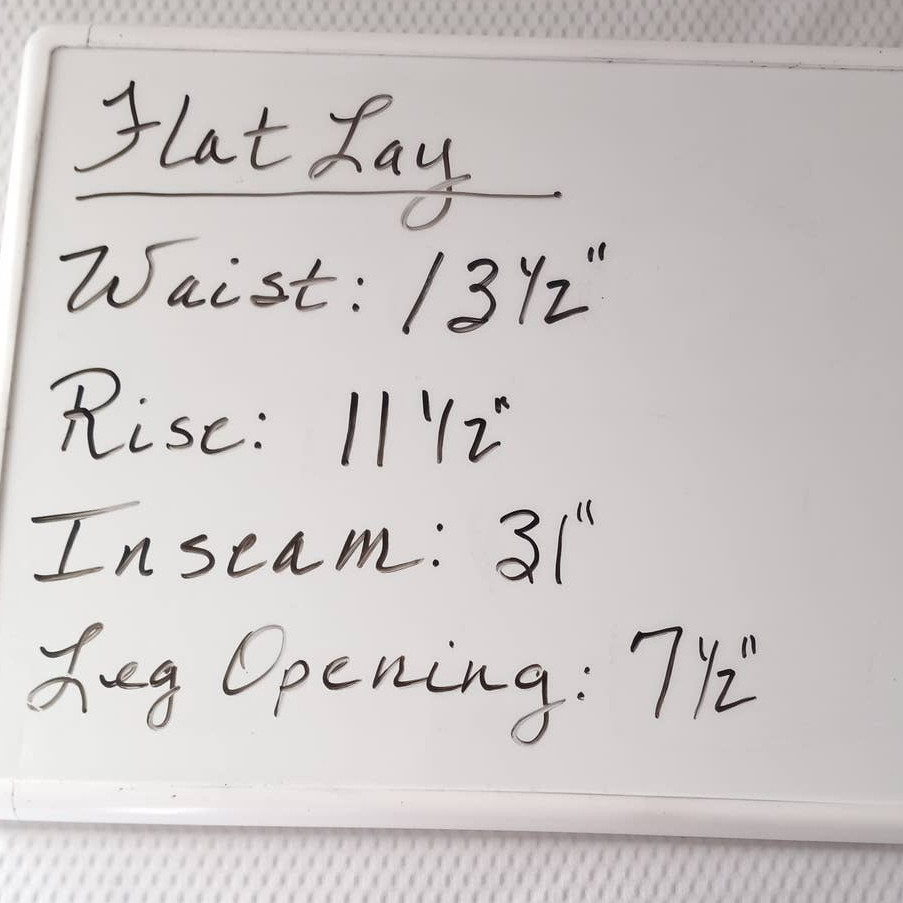 Flat Lay
Waist: 13 1/2"
Rise: 11 1/2"
Inseam: 31"
Leg Opening: 7 1/2"